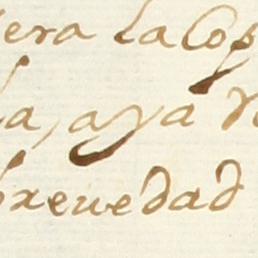 era la Cop
a, aya
breuedad